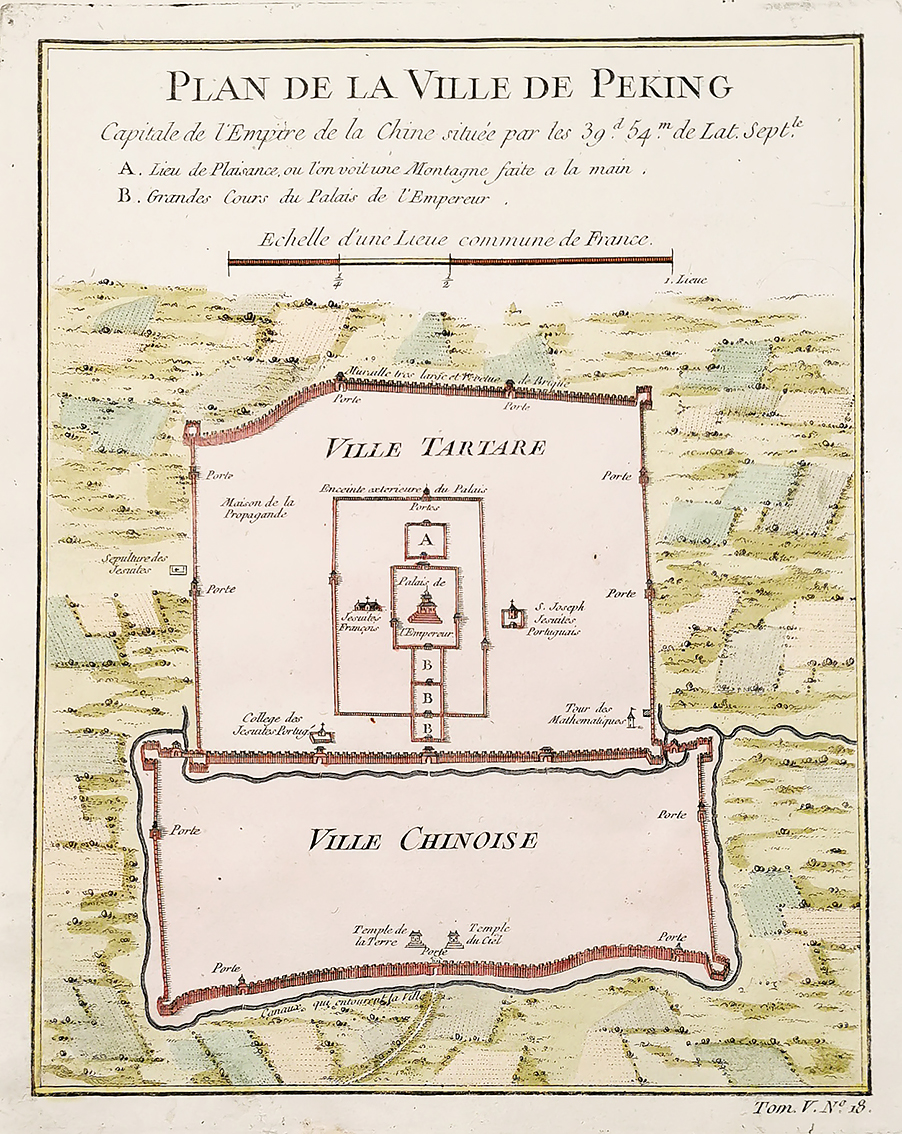 PLAN DE LA VILLE DE PEKING
Capitale de l'Empire de la Chine située par les 39.d 54.m de Lat. Septle.
A. Lieu de Plaisance, ou l'on voit une Montagne faite a la main.
B. Grandes Cours du Palais de l'Empereur.
Echelle d'une Lieue commune de France.
1/4
1/2
1. Lieue
Muraille tres large et revetue de Brique
Porte
Porte
VILLE TARTARE
Porte
Porte
Enceinte exterieure du Palais
Maison de la
Propagande
Portes
A
Sepulture des
Jesuites
Porte
Porte
Palais de
l'Empereur
Jesuites
François
S. Joseph
Jesuites
Portuguais
B
B
B
College des
Jesuites Portug.
Tour des
Mathematiques
Porte
Porte
VILLE CHINOISE
Temple de
la Terre
Temple
du Ciel
Porte
Porte
Porte
Canaux qui entourent la Ville
Tom. V. No. 18.